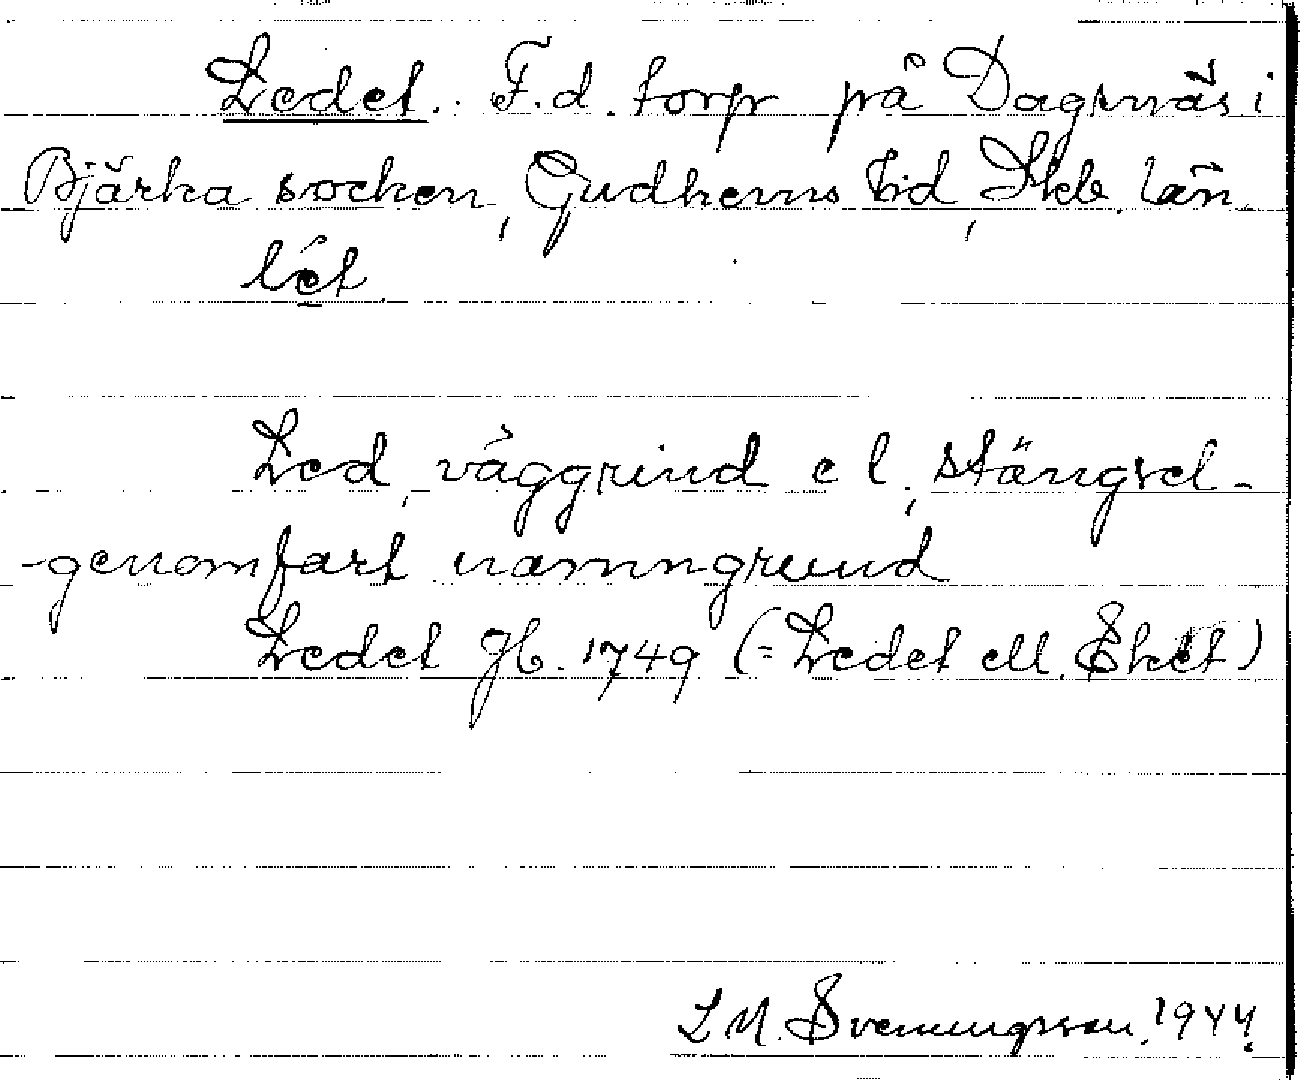 Ledet. F.d. torp på Dagsnäs i
Bjärka socken, Gudhems hd, Skb. län
lét
Led, väggrind el. stängsel-
-genomfart namngrund
Ledet Jb. 1749 (= Ledet ell. Eket)
L M. Svenungsson, 1944.